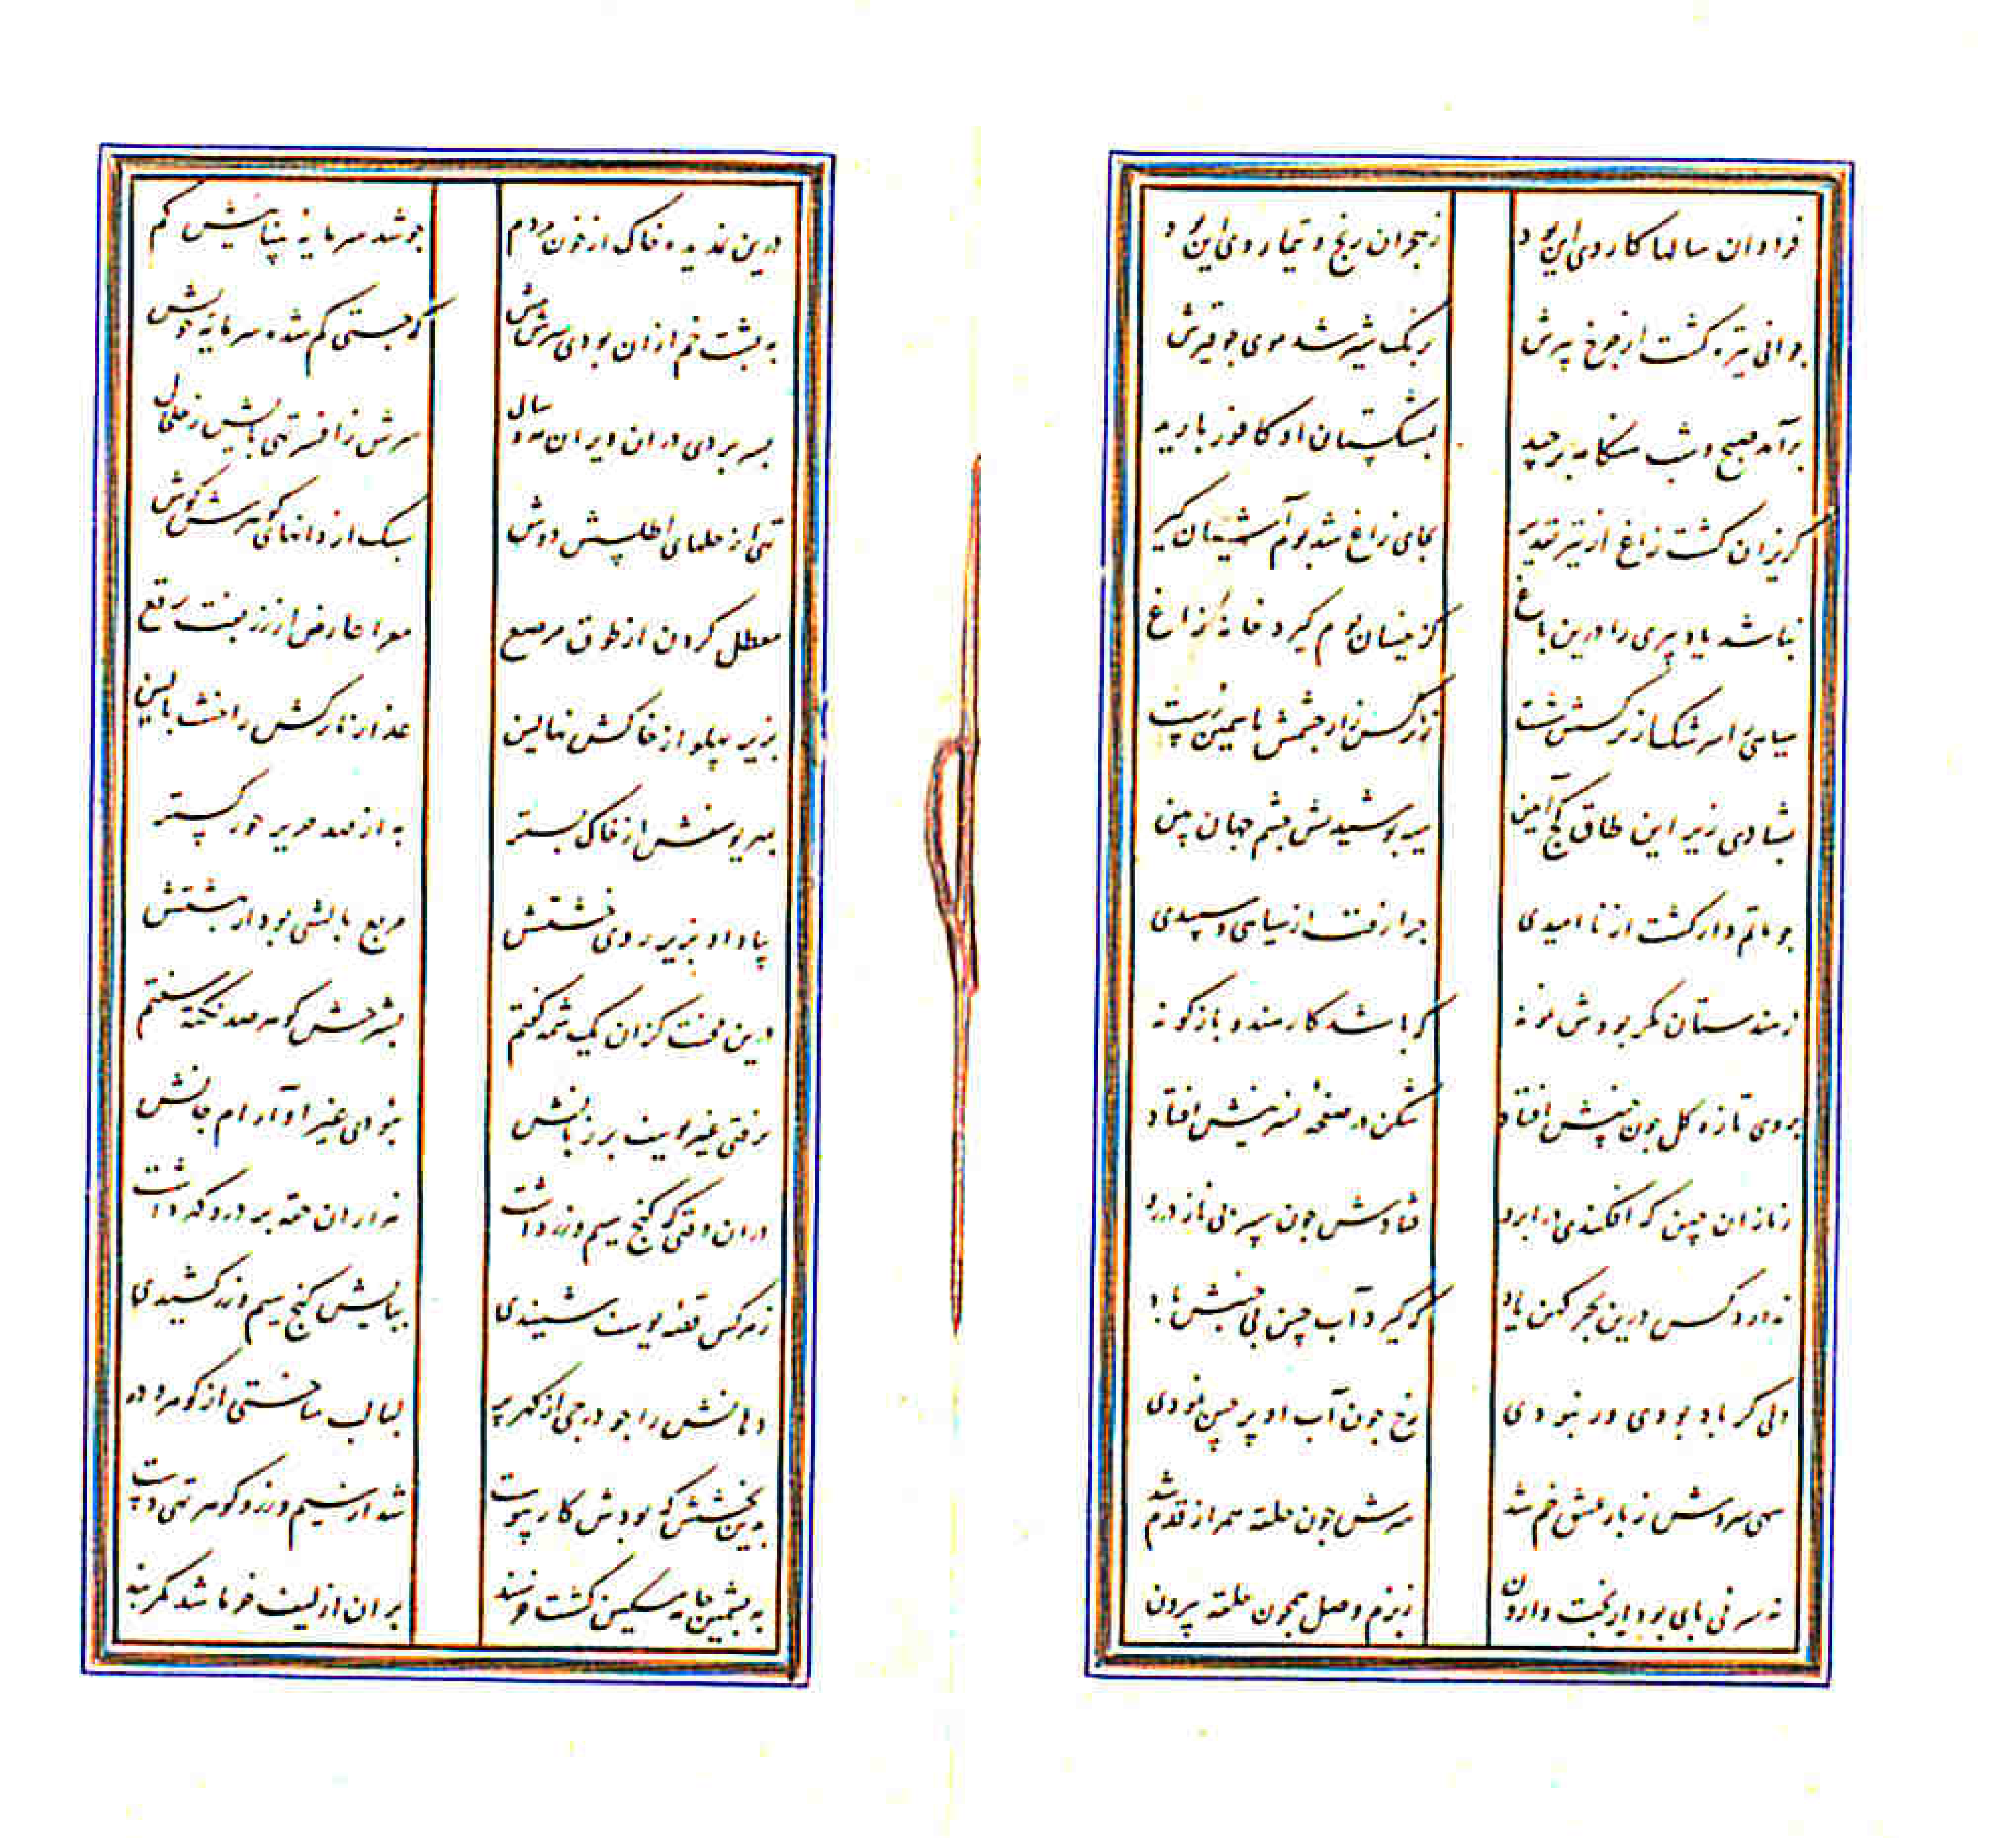 فراوان سالها کار وی این بود ز هجران رنج و تیمار وی این بود
جوانی تیره گشت از چرخ پیرش برنگ شیر شد موی چو قیرش
برآمد صبح و شب هنگامه برچید بمشکستان او کافور بارید
گریزان گشت زاغ از تیر تقدیر بجای زاغ شد بوم آشیان گیر
نباشد یاد پیری را درین باغ کزینسان بوم گیرد خانه زاغ
سیاهی سرشک از نرگسش شست ز نرگس زار چشمش یاسمین رست
بشادی زیر این طاق کج آیین سیه پوشید چشم جهان بین
چو ماتم دار گشت از ناامیدی چرا رفت از سیاهی سپیدی
ز هندستان مگر بودش نمونه که باشد کار هندو باژگونه
بروی تازه گل چون چینش افتاد شکن در صفحه نسرینش افتاد
ز ناز آن چین که افکندی در ابرو فتادش چون سپر بی ناز در رو
ندارد کس درین بحر کهن یاد که گیرد آب چین بی جنبش باد
ولی گر باد بودی ور نبودی رخ چون آب او پر چین نمودی
سهی سروش ز بار عشق خم شد سرش چون حلقه همراز قدم شد
نه سر نی پای بود از بخت واژون ز بزم وصل همچون حلقه بیرون
درین ندیده خاک از خون مردم چو شد سرمایه بیناییش گم
به پشت خم ازان بودی سرش پیش که جستی گم شده سرمایه خویش
بسر بردی دران ویران مه و سال سرش ز افسر تهی پایش ز خلخال
تهی از حلهای اطلسیش دوش سبک از دانهای گوهرش گوش
معطل گردن از طوق مرصع معرا عارض از زربفت برقع
بزیر پهلو از خاکش نهالین عذار نازکش را خشت بالین
بمهر یوسفش از خاک بستر به از صد حریر حور گستر
بیاد او بزیر روی خشتش مربع بالشی بود از بهشتش
درین محنت کزان یک شمه گفتم بشرحش گوهر صد نکته سفتم
نرفتی غیر یوسف بر زبانش نبودی غیر او آرام جانش
دران وقتی که گنج سیم و زر داشت هزاران حقه پر در و گهر داشت
ز هر کس قصه یوسف شنیدی بپایش گنج سیم و زر کشیدی
دهانش را چو درجی از گهر پر لبالب ساختی از گوهر و در
بدین بخشش که بودش کار پیوست شد از سیم و زر و گوهر تهی دست
به پشمین جامه مسکین گشت خرسند بران از لیف خرما شد کمربند